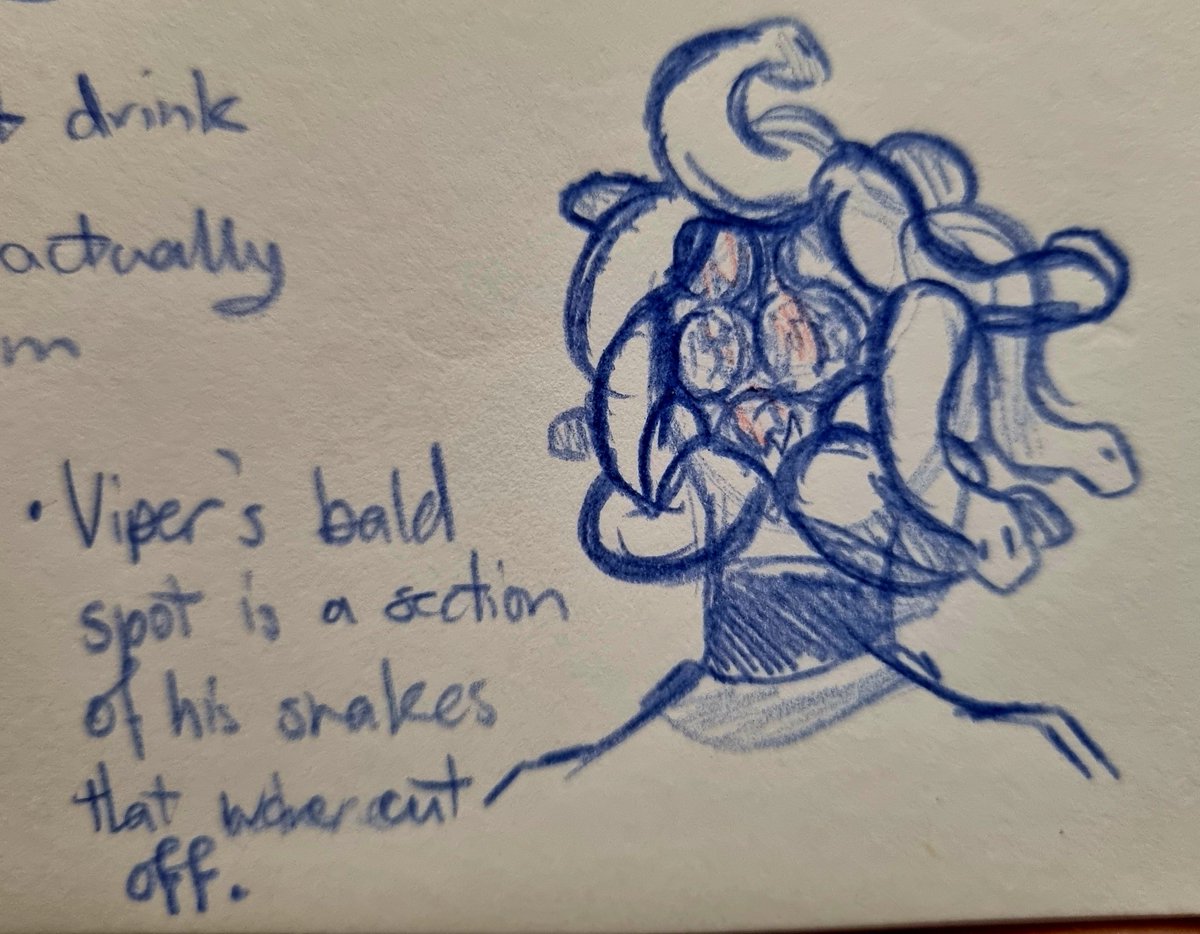 drink
actually
m
• Viper's bald
spot is a section
of his snakes
that were cut
off.